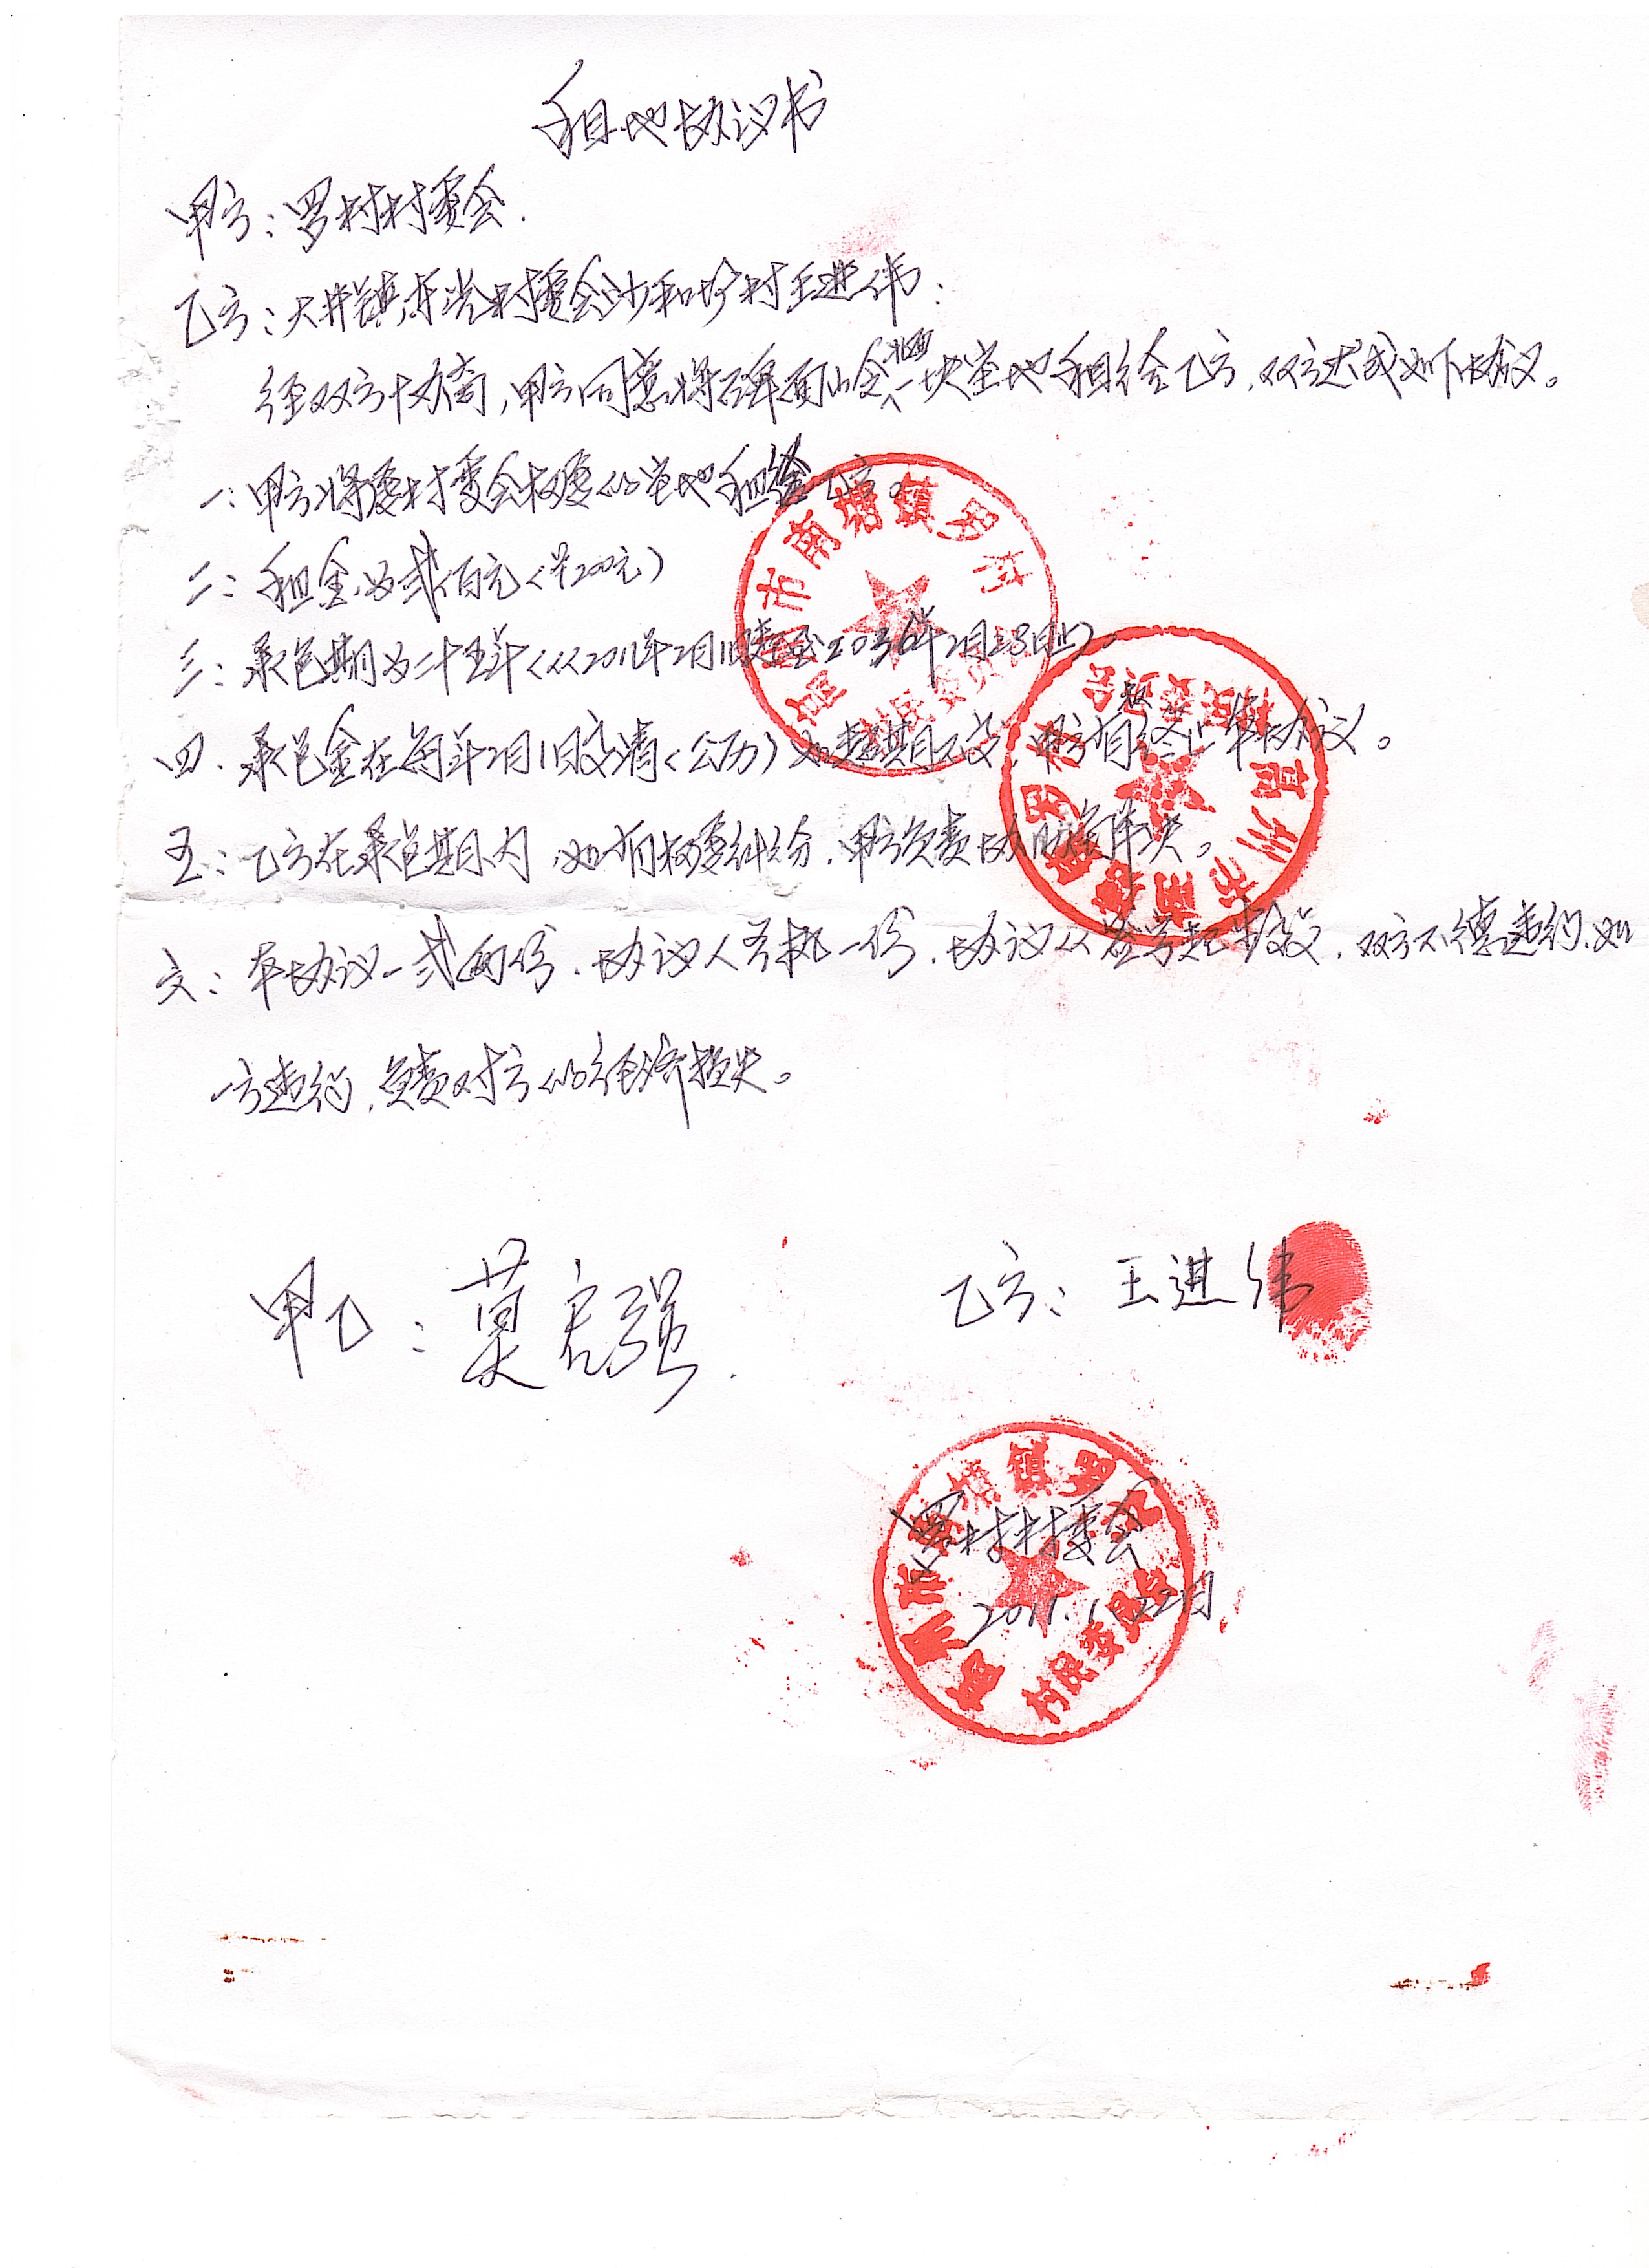 租地协议书
甲方：罗村村委会.
乙方：大井镇东光村委会沙和坉村王进伟：
经双方协商，甲方同意将石弹面岭北面一块荒地租给乙方，双方达成如下协议。
一：甲方将属村委会权属的荒地租给乙方。
二：租金为贰佰元（￥200元）
三：承包期为二十五年（从2011年2月1日起至2036年2月28日止）。
四、承包金在每年2月1日交清（公历）如超期不交，甲方有权终止本协议。
五：乙方在承包期内，如有权属纠纷，甲方负责协助解决。
六：本协议一式两份，协议人各执一份，协议从签字起生效，双方不得违约，如
一方违约，负责对方的经济损失。
甲乙：莫宏强.
乙方：王进伟
罗村村委会
2011.1月22日
高州市南塘镇罗村
村民委员会
高州市南塘镇罗村
高州市南塘镇罗村
村民委员会